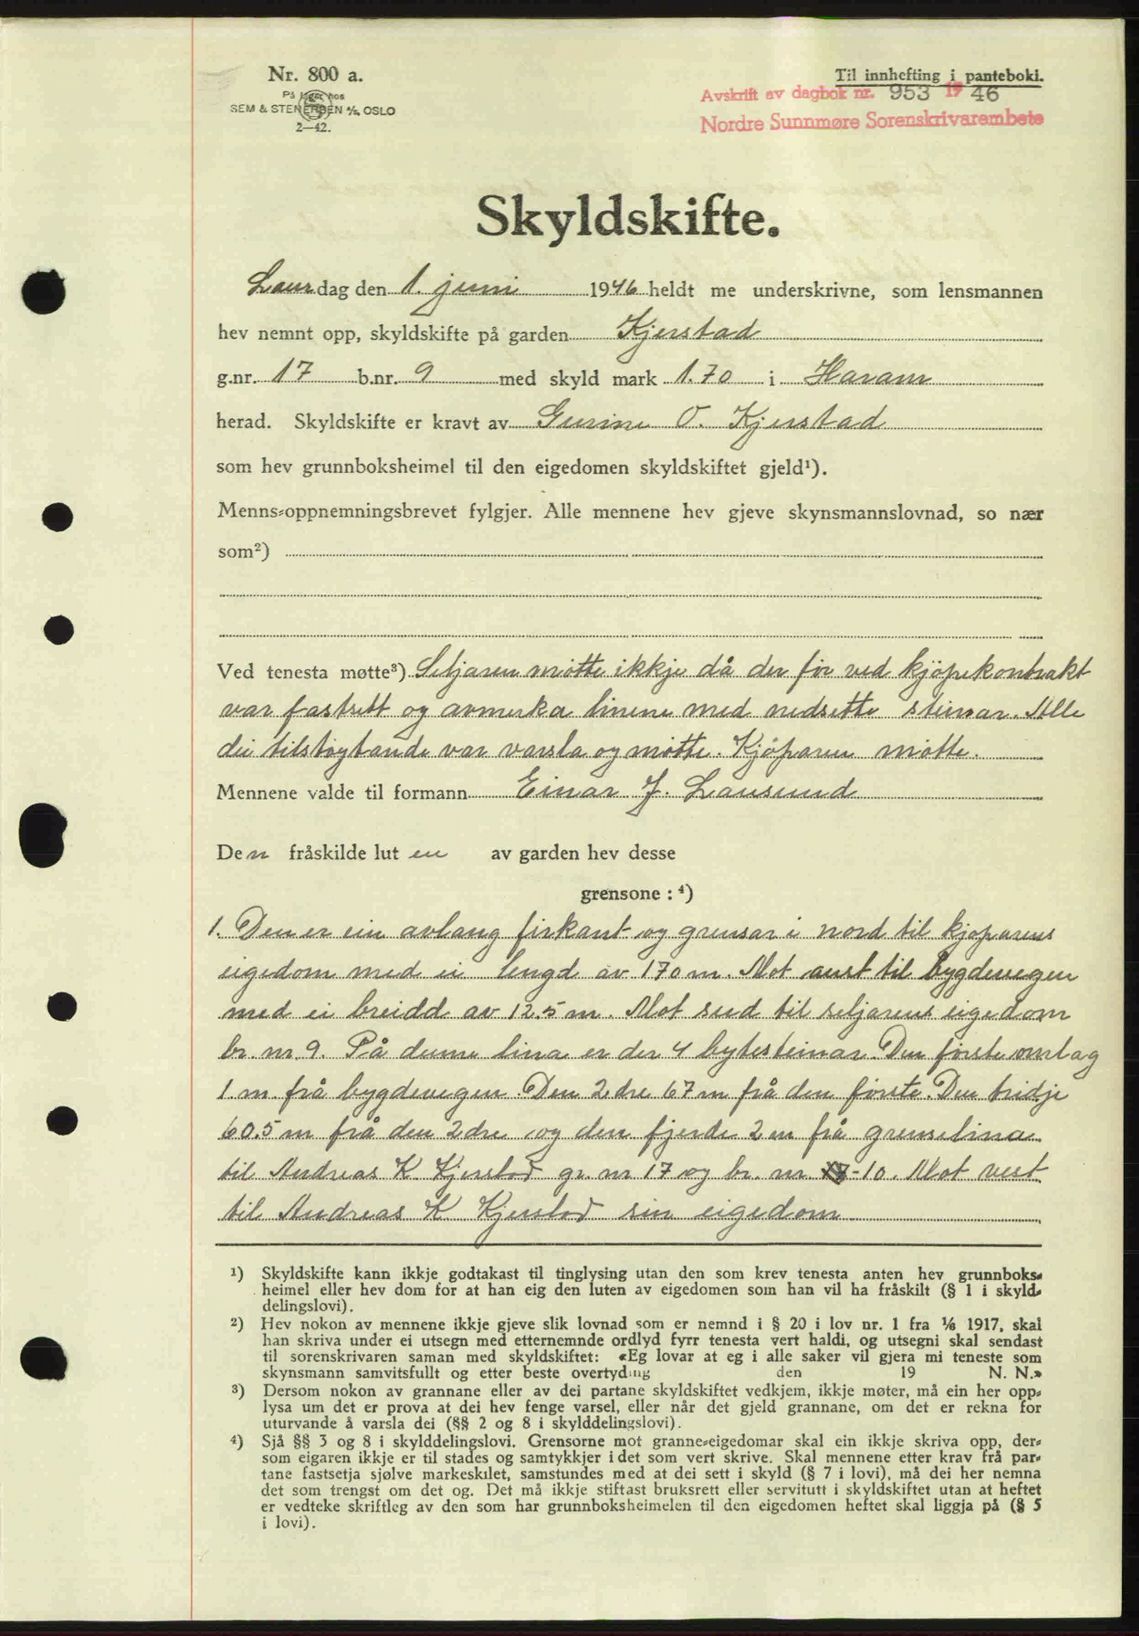 Nr. 800 a.
På lager hos
SEM & STENERSEN A/S, OSLO
2—42.
Til innhefting i panteboki.
Avskrift av dagbok nr. 953 19 46
Nordre Sunnmøre Sorenskrivarembete
Skyldskifte.
Laurdag den 1. juni 1946 heldt me underskrivne, som lensmannen
hev nemnt opp, skyldskifte på garden Kjerstad
g.nr. 17 b.nr. 9 med skyld mark 1.70 i Haram
herad. Skyldskifte er kravt av Gurine O. Kjerstad
som hev grunnboksheimel til den eigedomen skyldskiftet gjeld¹).
Menns-oppnemningsbrevet fylgjer. Alle mennene hev gjeve skynsmannslovnad, so nær
som²)
Ved tenesta møtte³) Seljaren møtte ikkje då der før ved kjöpekontrakt
var fastsett og avmerka linene med nedsette steinar. Alle
dei tilstøytande var varsla og møtte. Kjöparen møtte.
Mennene valde til formann Einar J. Lausund
Den fråskilde luten av garden hev desse
grensone : ⁴)
1. Den er ein avlang firkant og grensar i nord til kjøparens
eigedom med ei lengd av 170 m. Mot aust til bygdevegen
med ei breidd av 12.5 m. Mot sud til seljarens eigedom
br. nr. 9. På denne lina er der 4 bytesteinar. Den første omlag
1 m. frå bygdevegen. Den 2dre 67 m frå den første. Den tridje
60.5 m frå den 2dre og den fjerde 2 m frå grenselina
til Andreas K Kjerstad gr. nr 17 og br. nr -10. Mot vest
til Andreas K Kjerstad sin eigedom
¹) Skyldskifte kann ikkje godtakast til tinglysing utan den som krev tenesta anten hev grunnboks-
heimel eller hev dom for at han eig den luten av eigedomen som han vil ha fråskilt (§ 1 i skyld-
delingslovi).
²) Hev nokon av mennene ikkje gjeve slik lovnad som er nemnd i § 20 i lov nr. 1 fra 1/6 1917, skal
han skriva under ei utsegn med etternemnde ordlyd fyrr tenesta vert haldi, og utsegni skal sendast
til sorenskrivaren saman med skyldskiftet: «Eg lovar at eg i alle saker vil gjera mi teneste som
skynsmann samvitsfullt og etter beste overtyding den 19 N. N.»
³) Dersom nokon av grannane eller av dei partane skyldskiftet vedkjem, ikkje møter, må ein her opp-
lysa um det er prova at dei hev fenge varsel, eller når det gjeld grannane, om det er rekna for
uturvande å varsla dei (§§ 2 og 8 i skylddelingslovi).
⁴) Sjå §§ 3 og 8 i skylddelingslovi. Grensorne mot granne-eigedomar skal ein ikkje skriva opp, der-
som eigaren ikkje er til stades og samtykkjer i det som vert skrive. Skal mennene etter krav frå par-
tane fastsetja sjølve markeskilet, samstundes med at dei sett i skyld (§ 7 i lovi), må dei her nemna
det som trengst om det og. Det må ikkje stiftast bruksrett eller servitutt i skyldskiftet utan at heftet
er vedteke skriftleg av den som har grunnboksheimelen til den eigedomen heftet skal liggja på (§ 5
i lovi).